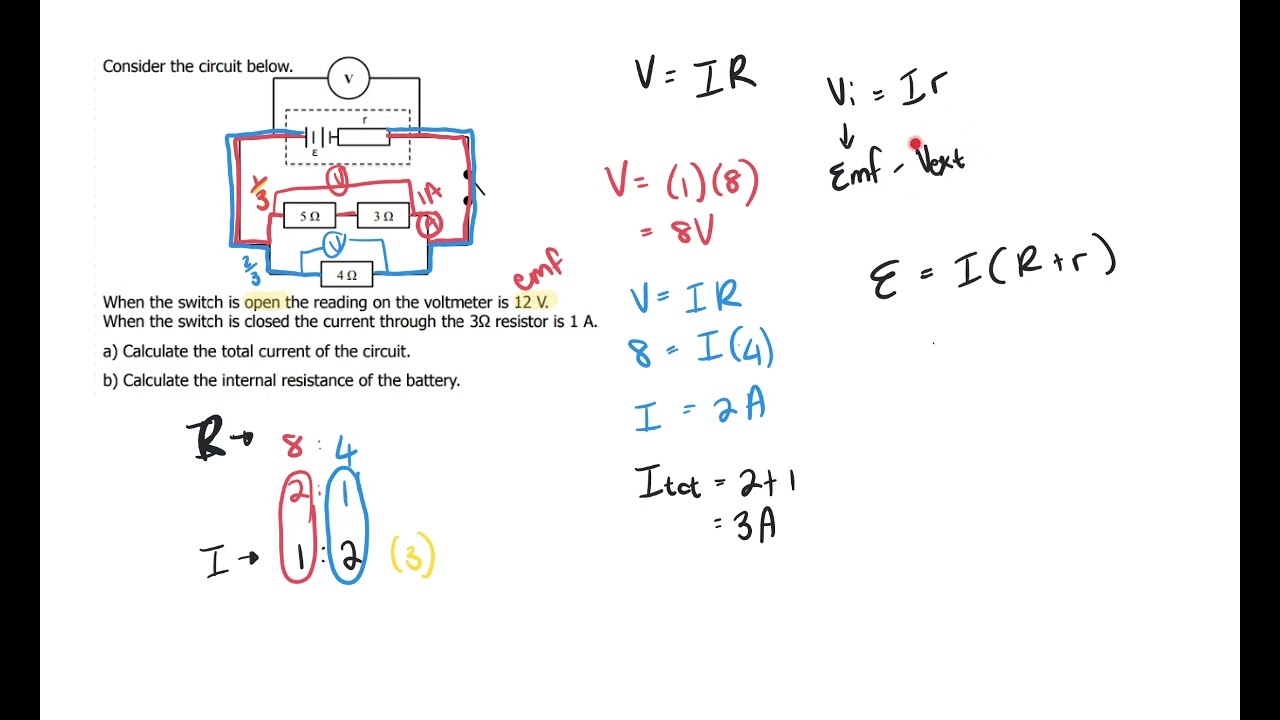 Consider the circuit below.
V
r
ε
V
1/3
1A
5 Ω
3 Ω
A
V
2/3
4 Ω
emf
When the switch is open the reading on the voltmeter is 12 V.
When the switch is closed the current through the 3Ω resistor is 1 A.
a) Calculate the total current of the circuit.
b) Calculate the internal resistance of the battery.
R → 8 : 4
2 : 1
I → 1 : 2 (3)
V = IR
V = (1)(8)
= 8V
V = IR
8 = I(4)
I = 2A
Itot = 2+1
= 3A
Vi = Ir
↓
Emf - Vext
ε = I(R+r)